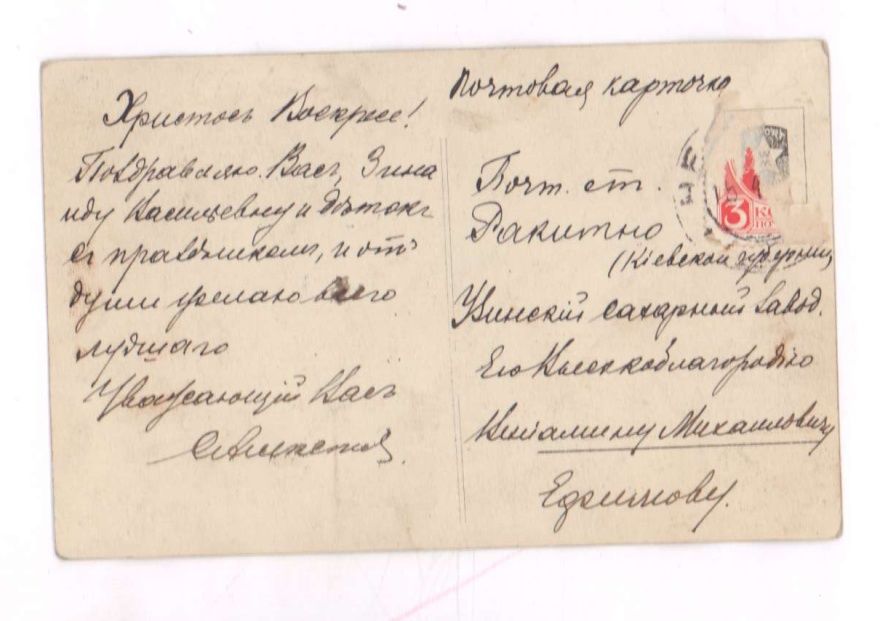 Христосъ Воскресе!
Поздравляю Васъ, Зина
иду Васильевну и Дѣтокъ
съ праздникомъ, и отъ
души желаю всего
лучшаго
Уважающій Васъ
Почтовая карточка
Почт. ст.
Ракитно
(Кіевской губерніи)
Узинскій сахарный завод.
Его Высокоблагородію
Веніамину Михаиловичу
Ефимову.
3 КО
ПО